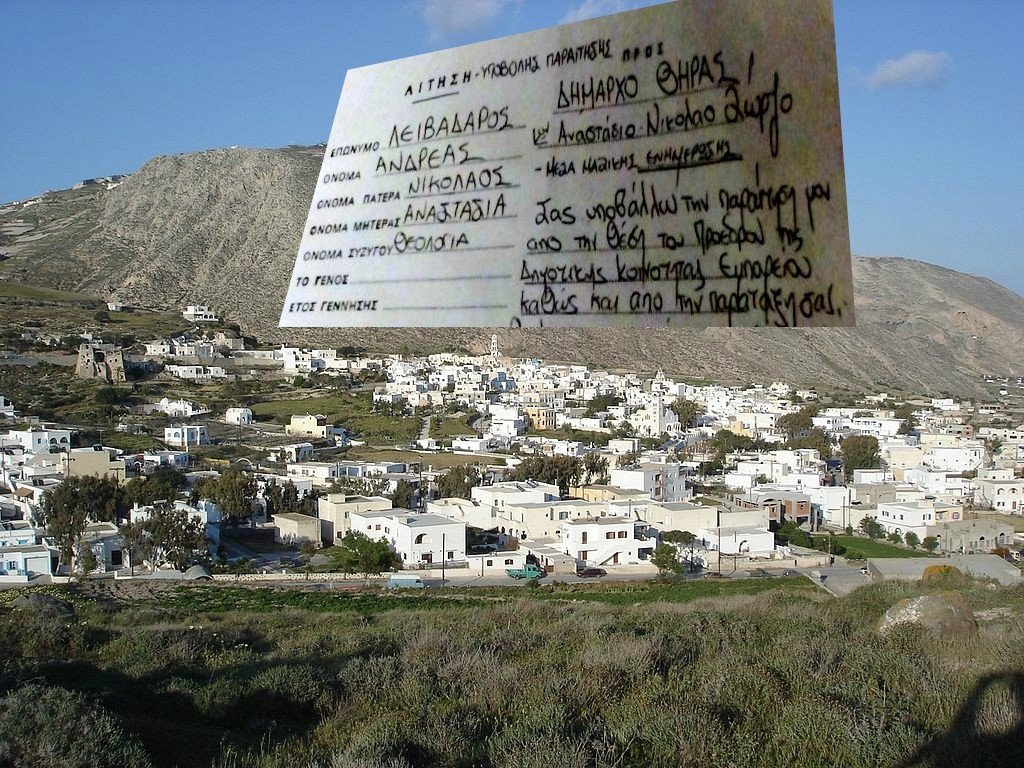 ΑΙΤΗΣΗ - ΥΠΟΒΟΛΗΣ ΠΑΡΑΙΤΗΣΗΣ ΠΡΟΣ
ΕΠΩΝΥΜΟ ΛΕΙΒΑΔΑΡΟΣ
ΟΝΟΜΑ ΑΝΔΡΕΑΣ
ΟΝΟΜΑ ΠΑΤΕΡΑ ΝΙΚΟΛΑΟΣ
ΟΝΟΜΑ ΜΗΤΕΡΑΣ ΑΝΑΣΤΑΣΙΑ
ΟΝΟΜΑ ΣΥΖΥΓΟΥ ΘΕΟΛΟΓΙΑ
ΤΟ ΓΕΝΟΣ
ΕΤΟΣ ΓΕΝΝΗΣΗΣ
ΔΗΜΑΡΧΟ ΘΗΡΑΣ
Αναστάσιο - Νικόλαο Ζώρζο
- ΜΕΣΑ ΜΑΖΙΚΗΣ ΕΝΗΜΕΡΩΣΗΣ
Σας υποβάλλω την παραίτηση μου
απο την θέση του Προέδρου της
Δημοτικής Κοινότητας Εμπορείου
καθώς και απο την παράταξη σας.